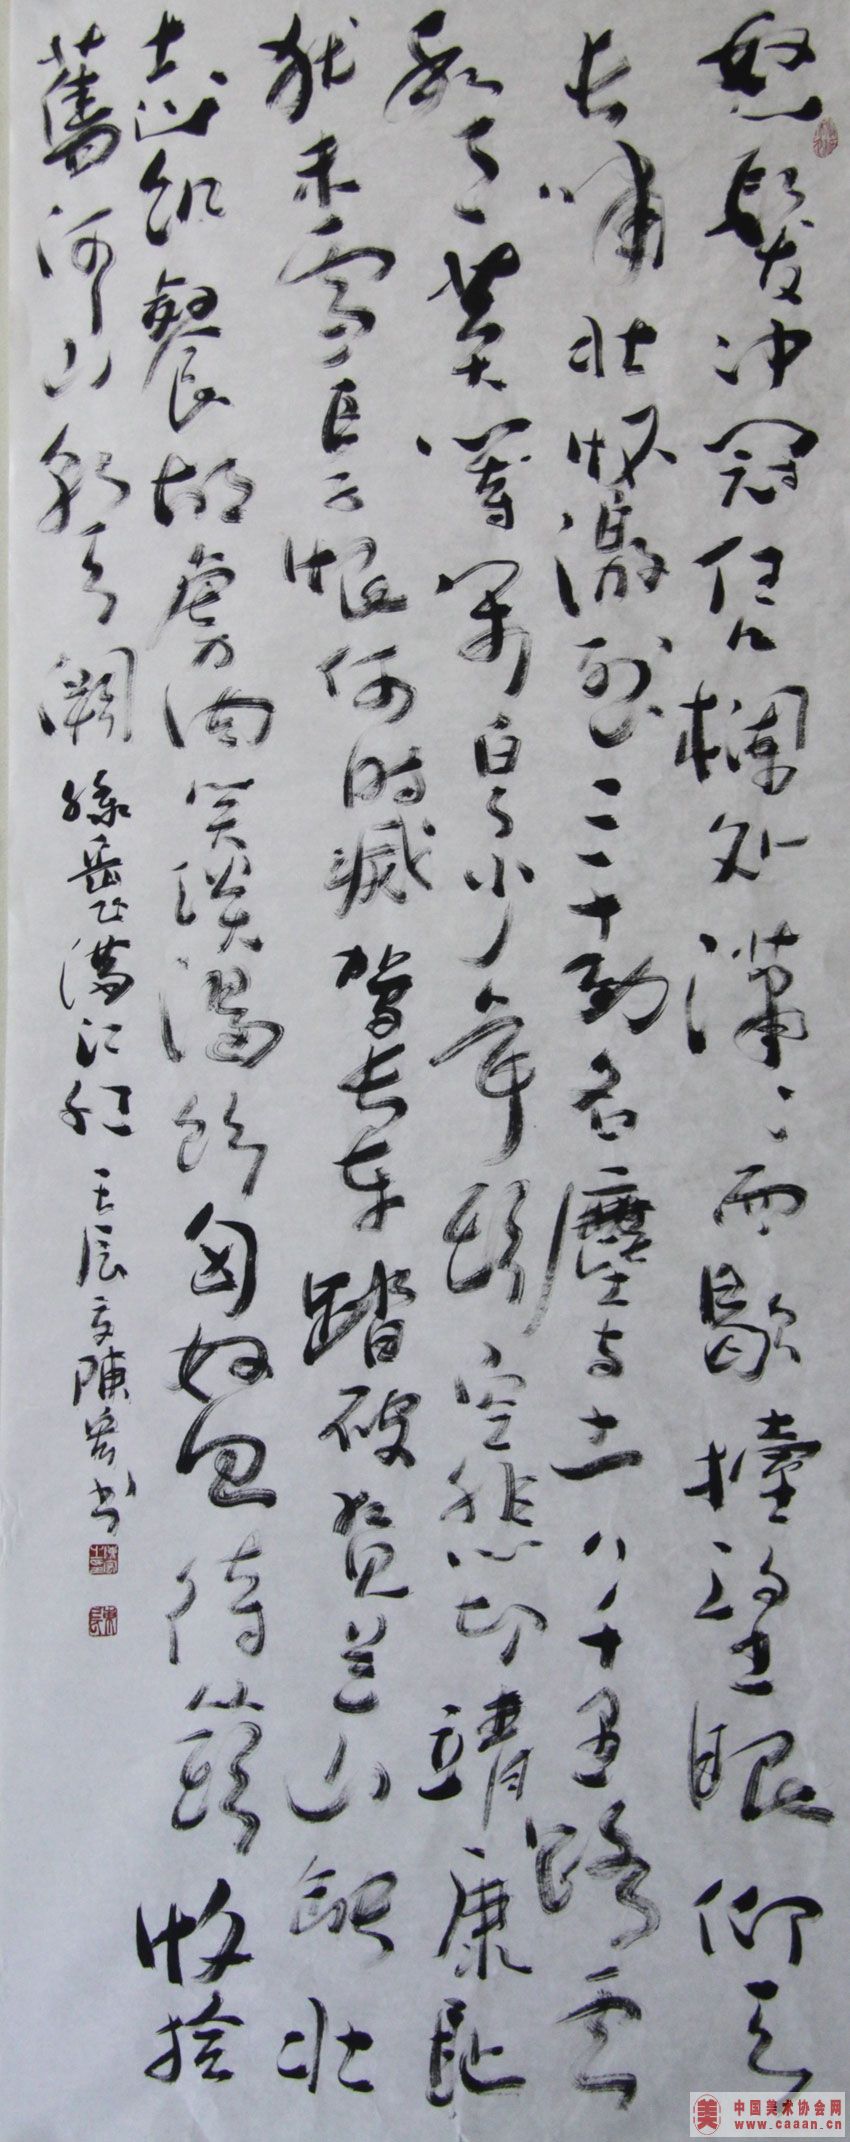 怒髮冲冠凭欄处瀟瀟雨歇擡望眼仰天
长嘯壯怀激烈三十功名塵与土八千里路雲
和月莫等閑白了少年頭空悲切靖康耻
犹未雪臣子恨何時滅驾长车踏破賀兰山缺壯
志飢餐胡虜肉笑談渴飲匈奴血待從頭收拾
舊河山朝天闕 錄岳飞满江红 壬辰夏陳宏书
美 中国美术协会网
www.caaan.cn